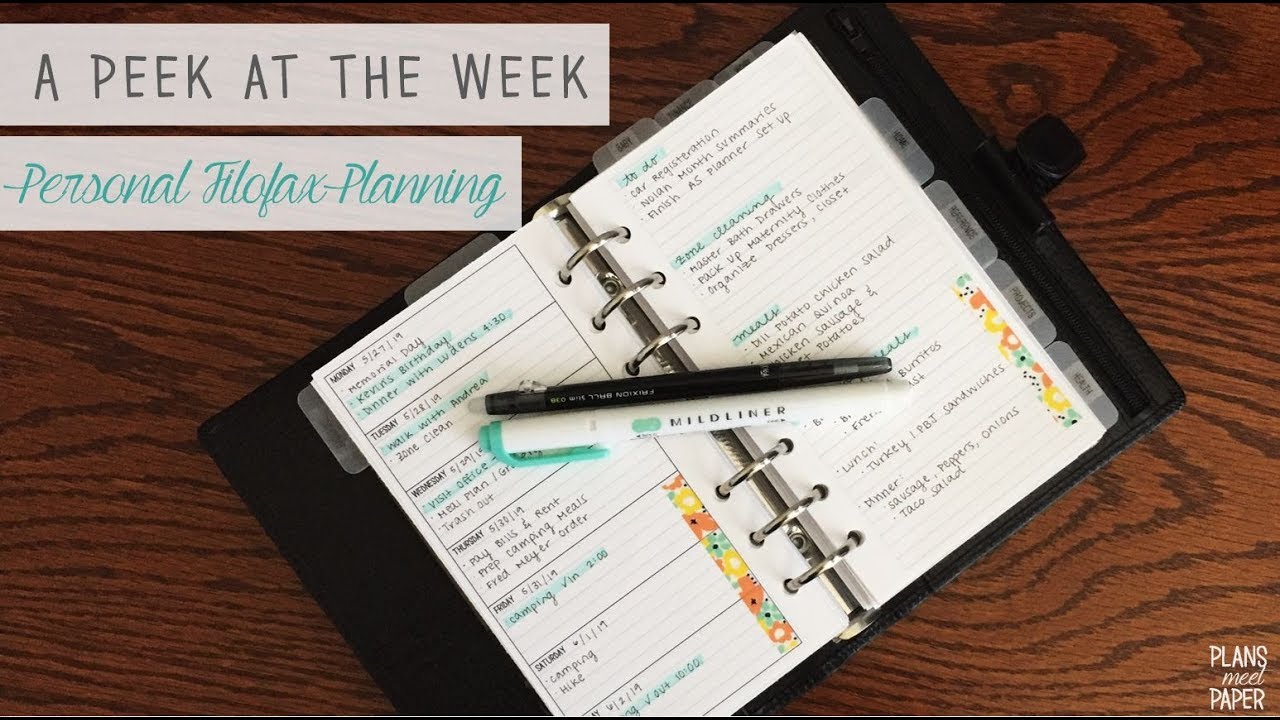 A PEEK AT THE WEEK
Personal Filofax Planning
MONDAY 5/27/19
· Memorial Day
· Kevins Birthday
Dinner with Wdens 4:30
TUESDAY 5/28/19
Walk with Andrea
· Zone Clean
WEDNESDAY 5/29/19
Visit Office
Meal Plan / Gr
Trash out
THURSDAY 5/30/19
· Pay Bills & Rent
· Prep Camping Meals
· Fred Meyer Order
FRIDAY 5/31/19
camping in 2:00
SATURDAY 6/1/19
· camping
· Hike
SUNDAY 6/2/19
out 10:00
to do
· Car Registeration
· Nolan Month Summaries
· Finish A5 Planner Set Up
zone cleaning
· Master Bath Drawers
· Pack Up Maternity Clothes
· Organize Dressers, Closet
meals
· Dill Potato Chicken Salad
· Mexican Quinoa
· Chicken Sausage &
Potatoes
Burritos
Lunch:
· Turkey / PB&J Sandwiches
Dinner:
· Sausage, Peppers, Onions
· Taco Salad
BABY
REFERENCE
PROJECTS
HEALTH
FRIXION BALL Slim 038
MILDLINER
PLANS
meet
PAPER